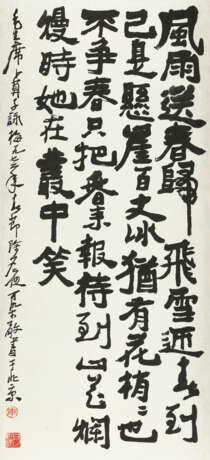 風雨送春歸飛雪迎春到
已是懸崖百丈冰猶有花梢〻也
不爭春只把春來報待到山花爛
熳時她在叢中笑
毛主席卜算子詠梅 年春節除夕夜可染敬書于北京